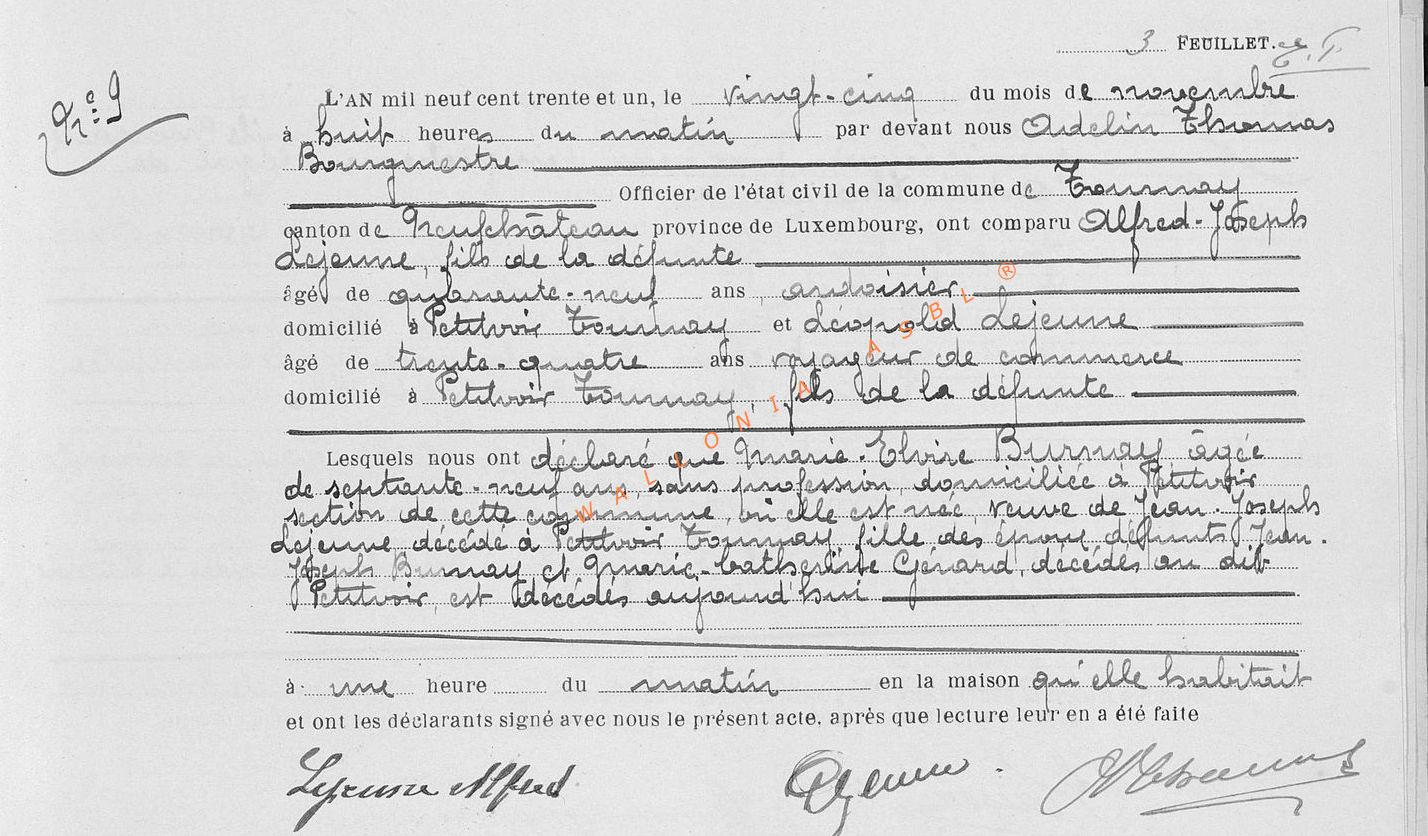 3 FEUILLET.
N° 9
L'AN mil neuf cent trente et un, le vingt-cinq du mois de novembre
à huit heures du matin par devant nous Adelin Thomas
Bourgmestre
Officier de l'état civil de la commune de Tournay
canton de Neufchâteau province de Luxembourg, ont comparu Alfred-Joseph
Lejeune, fils de la défunte
âgé de quarante-neuf ans, ardoisier
domicilié à Petitvoir Tournay et Léopold Lejeune
âgé de trente-quatre ans voyageur de commerce
domicilié à Petitvoir Tournay, fils de la défunte
Lesquels nous ont déclaré que Marie-Elvire Burnay âgée
de septante-neuf ans, sans profession, domiciliée à Petitvoir
section de cette commune, où elle est née, veuve de Jean-Joseph
Lejeune, décédé à Petitvoir Tournay, fille des époux défunts Jean-
Joseph Burnay et Marie-Catherine Gérard, décédés au dit
Petitvoir, est décédés aujourd'hui
à une heure du matin en la maison qu'elle habitait
et ont les déclarants signé avec nous le présent acte, après que lecture leur en a été faite
Lejeune Alfred LLejeune AThomas
WALLONIA ASBL ®